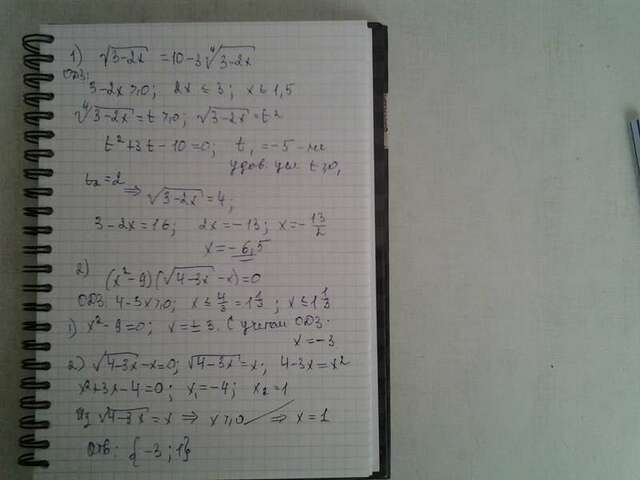 1) √(3-2x) = 10-3 ⁴√(3-2x)
ОДЗ:
3-2x≥0; 2x ≤ 3; x ≤ 1,5
⁴√(3-2x) = t ≥ 0; √(3-2x) = t²
t²+3t-10=0; t₁ = -5 - не
удов. усл t≥0,
t₂=2 ⇒ √(3-2x) = 4;
3-2x=16; 2x=-13; x=-13/2
x=-6,5
2) (x²-9)(√(4-3x) -x)=0
ОДЗ: 4-3x≥0; x ≤ 4/3 = 1 1/3; x ≤ 1 1/3
1) x²-9=0; x=±3. С учетом ОДЗ:
x=-3
2) √(4-3x) -x=0; √(4-3x) =x; 4-3x=x²
x²+3x-4=0; x₁=-4; x₂=1
Из √(4-3x) = x ⇒ x≥0 ⇒ x=1
Отв: {-3; 1}